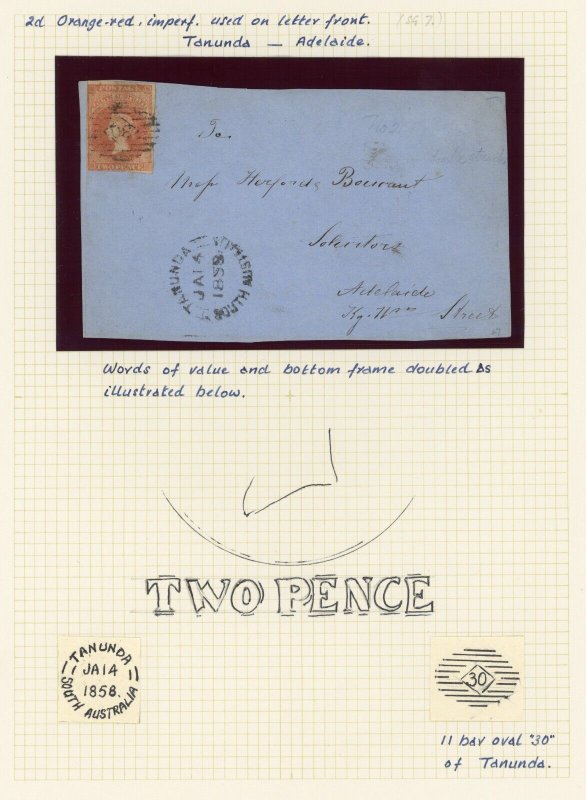 2d Orange-red, imperf. used on letter front. (SG 7.)
Tanunda — Adelaide.
POSTAGE
TWO PENCE
To
Herford & Boucaut
Solicitors
Adelaide
Kg. Wm Street
TANUNDA
JA 14
1858
SOUTH AUSTRALIA
Words of value and bottom frame doubled as
illustrated below.
TWO PENCE
TANUNDA
JA14
1858.
SOUTH AUSTRALIA
30
11 bar oval "30"
of Tanunda.